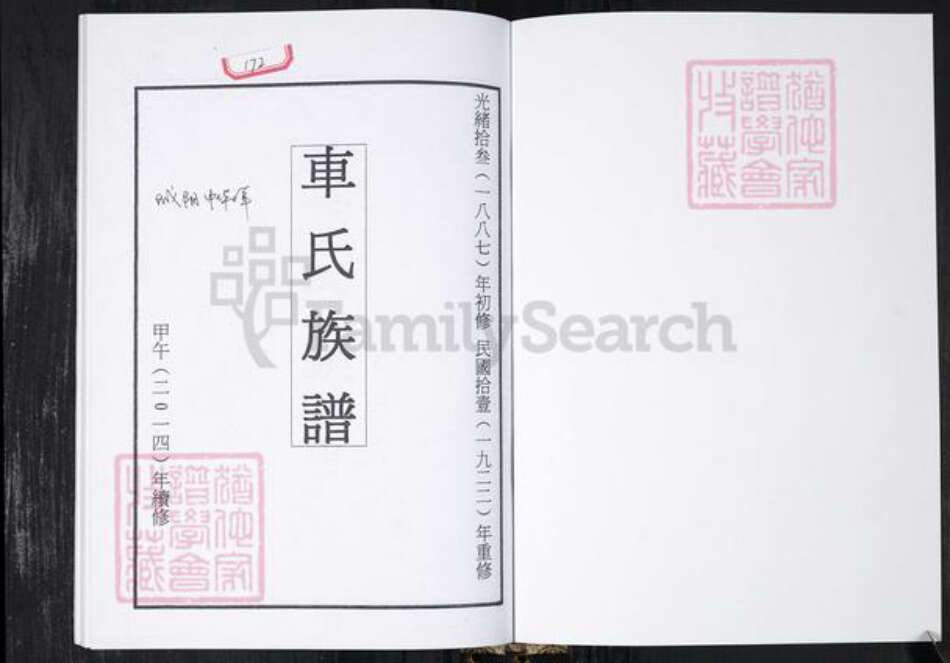 猶他家
譜學會
收藏
172
光緒拾叁（一八八七）年初修 民國拾壹（一九二二）年重修
車氏族譜
甲午（二0一四）年續修
猶他家
譜學會
收藏
FamilySearch